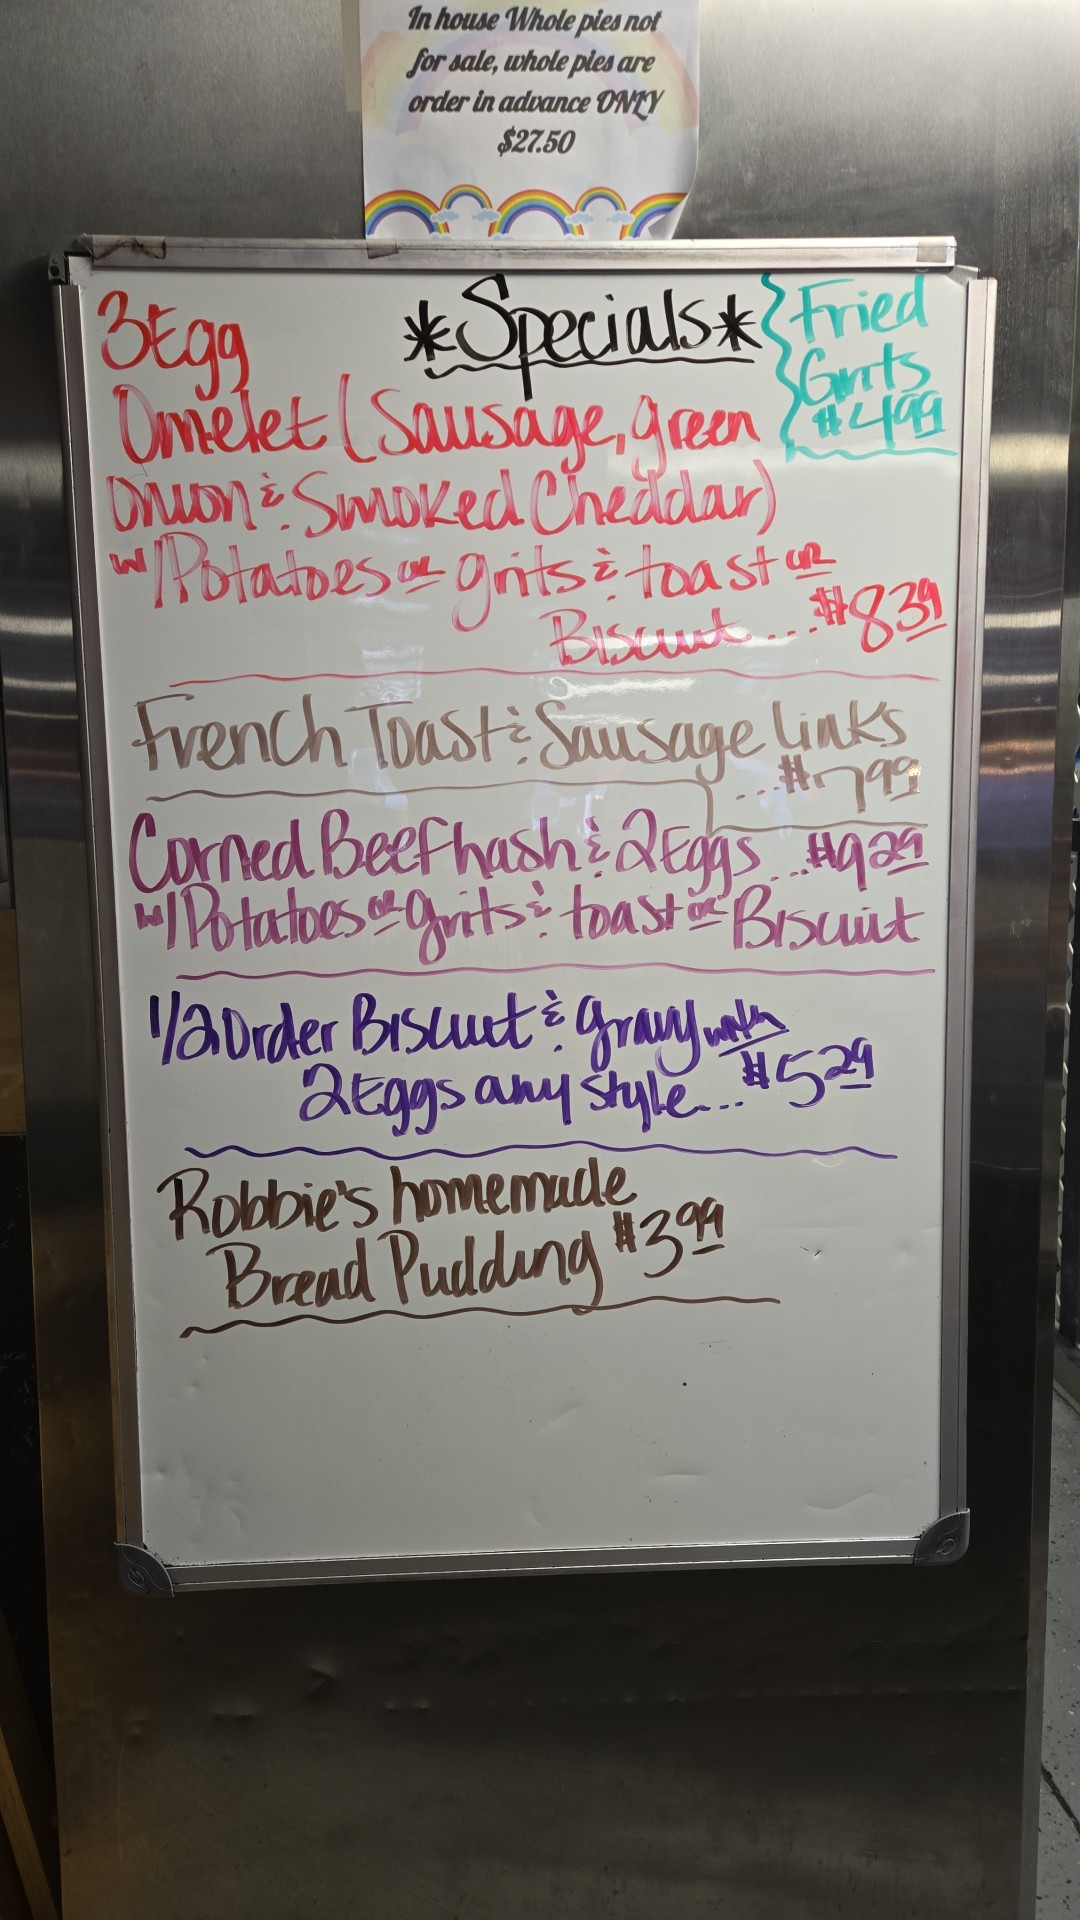 In house Whole pies not
for sale, whole pies are
order in advance ONLY
$27.50
*Specials*
Fried
Grits
$4.99
3 Egg
Omelet (Sausage, green
onion & Smoked Cheddar)
w/Potatoes or grits & toast or
Biscuit... $8.39
French Toast & Sausage links
...$7.99
Corned Beef hash & 2 Eggs ...$9.29
w/Potatoes or grits & toast or Biscuit
1/2 Order Biscuit & gravy with
2 Eggs any style... $5.29
Robbie's homemade
Bread Pudding $3.99